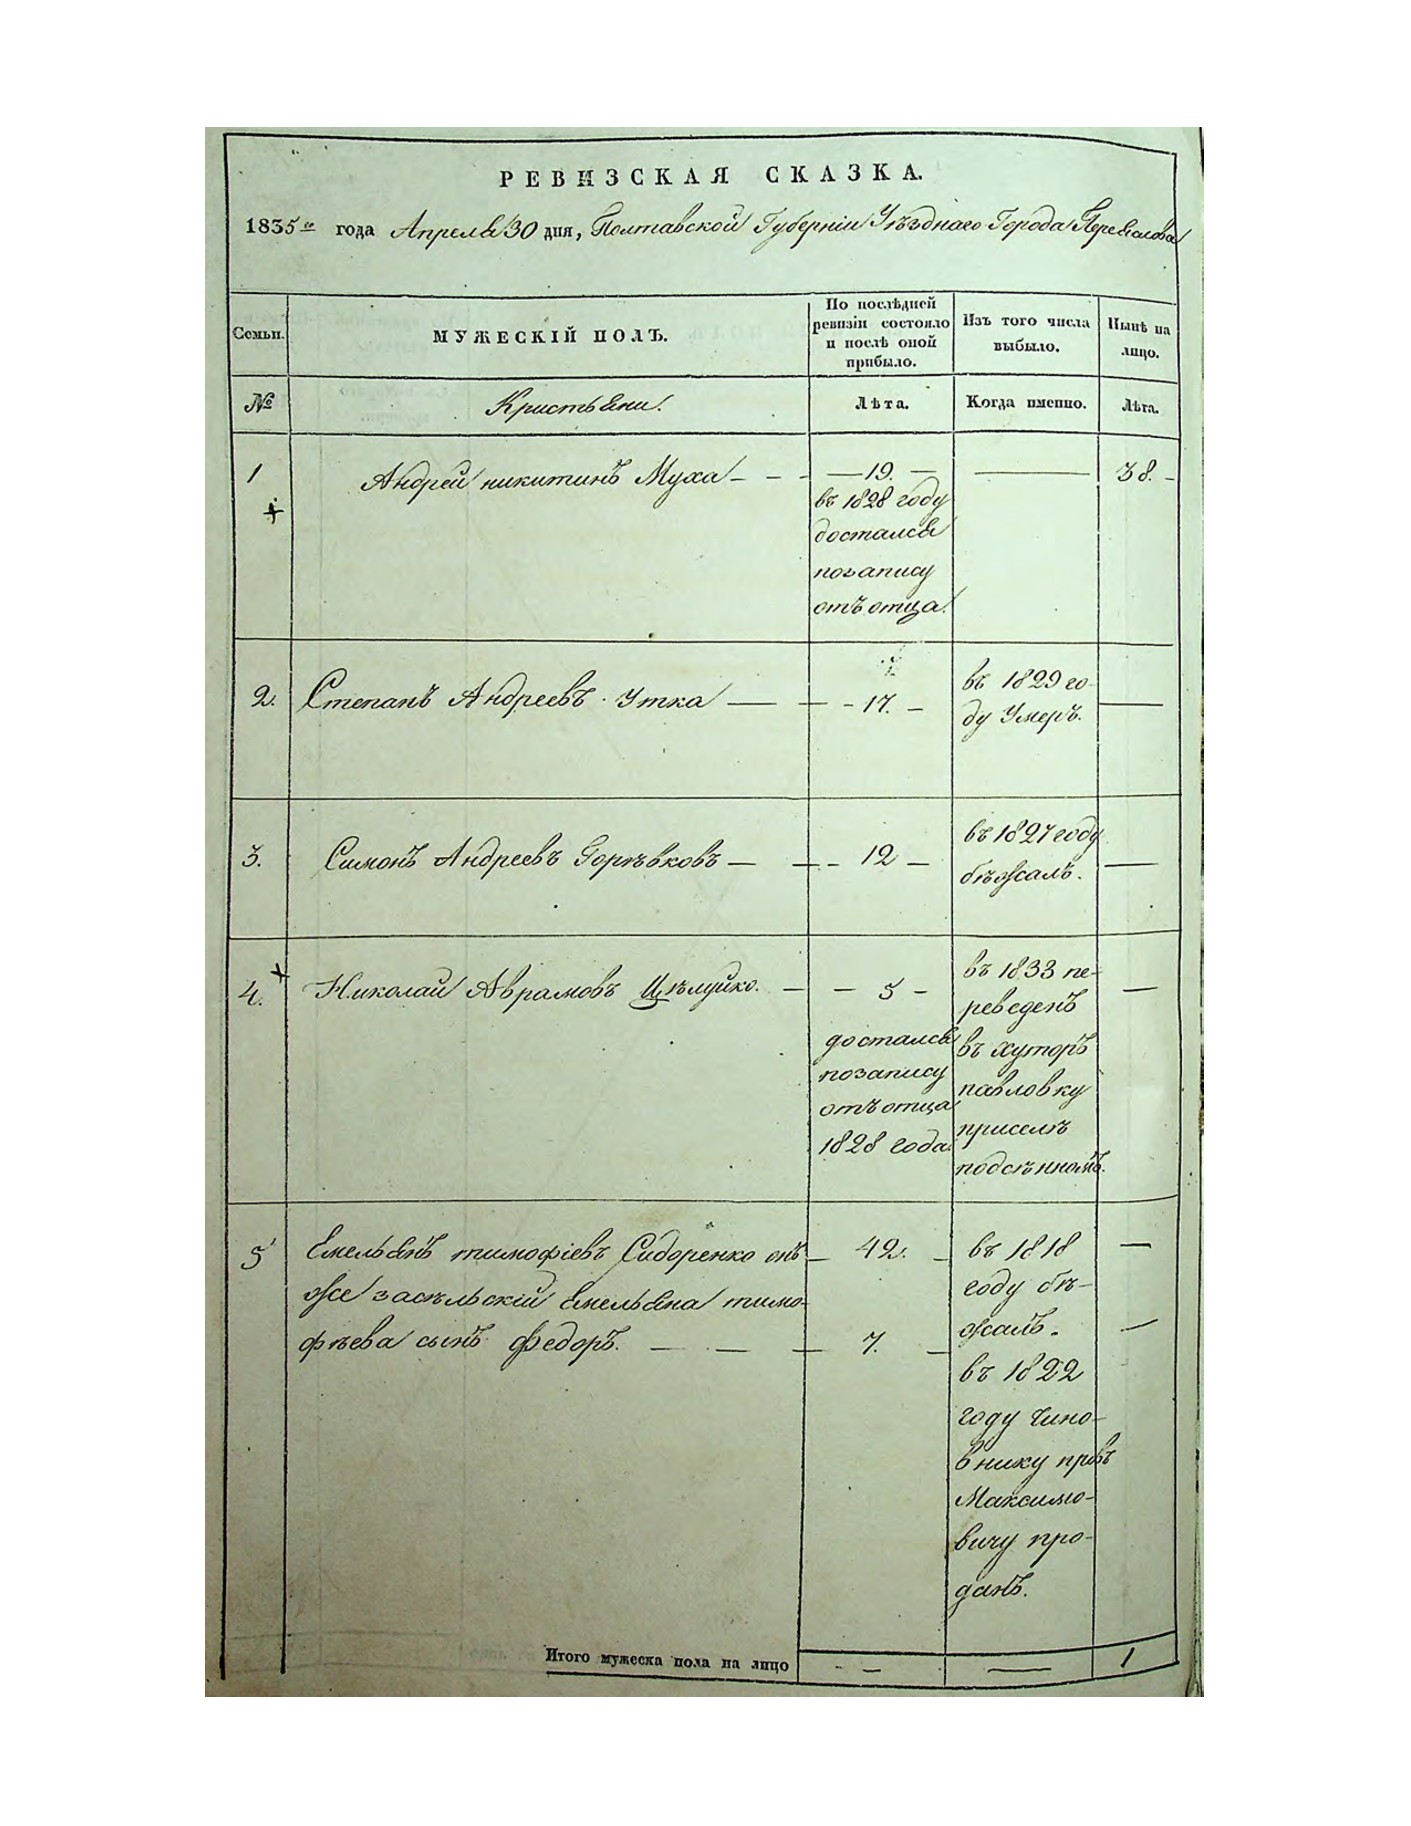 РЕВИЗСКАЯ СКАЗКА.
1835го года Апреля 30 дня, Полтавской Губерніи Уѣзднаго Города Переяслова
Семьи.
МУЖЕСКІЙ ПОЛЪ.
По послѣдней
ревизіи состояло
и послѣ оной
прибыло.
Изъ того числа
выбыло.
Нынѣ на
лицо.
№
Кристьяни.
Лѣта.
Когда именно.
Лѣта.
1
Андрей никитинъ Муха — — —
— 19. —
въ 1828 году
достался
позапису
отъ отца.
———
38. -
+
2.
Степанъ Андреевъ Утка —
— - 17. —
въ 1829 го-
ду Умеръ.
—
3.
Симонъ Андреевъ Горѣвковъ —
— - 12 —
въ 1827 году
бѣжалъ.
—
4. +
Николай Аврамовъ Цѣлуйко. —
— 5 -
достался
позапису
отъ отца
1828 года.
въ 1833 пе-
реведенъ
въ хуторъ
павловку
приселѣ
подсѣнномъ.
—
5
Емельянъ тимофіевъ Сидоренко онъ
же засѣльскій Емельяна тимо-
фѣева сынъ федоръ. — — —
— 42. —
7. —
въ 1818
году бѣ-
жалъ.
въ 1822
году Чино-
внику
Максимо-
вичу про-
данъ.
—
—
Итого мужеска пола на лицо
- —
—
1